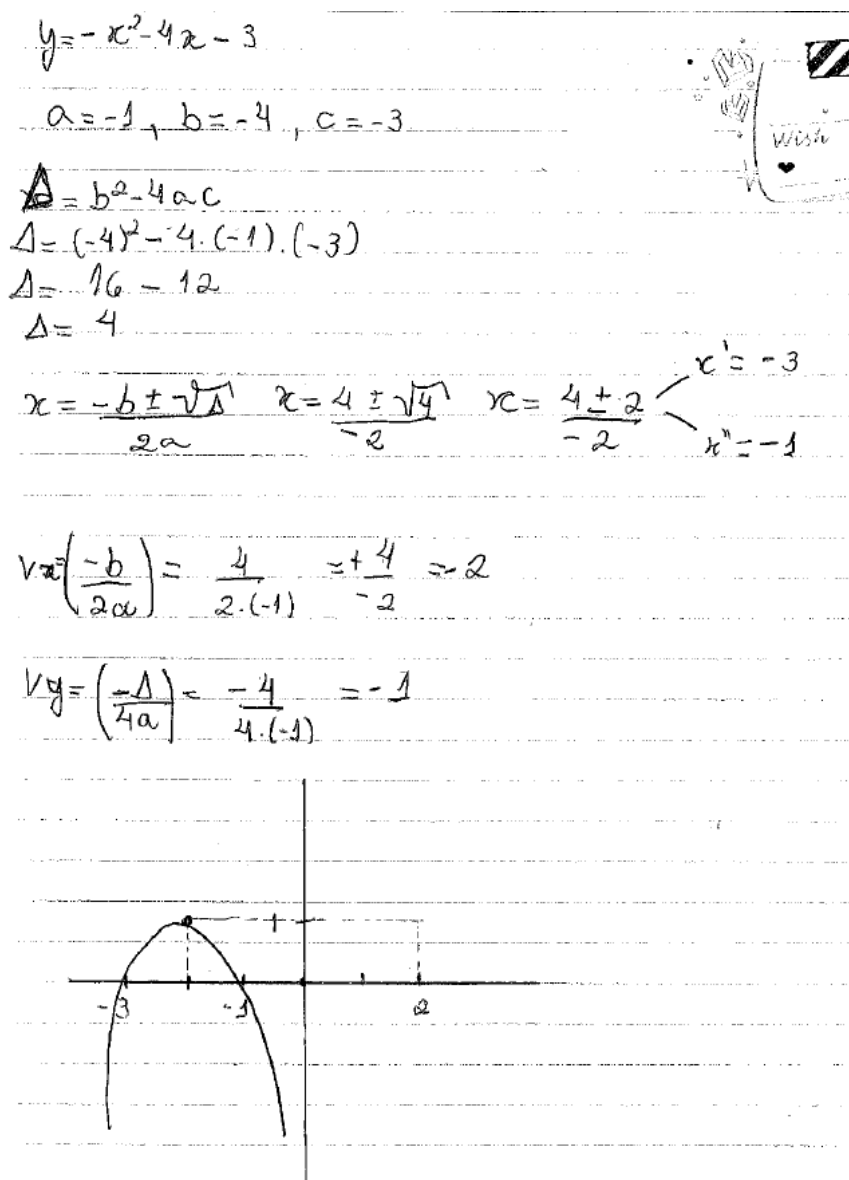 y = -x² - 4x - 3
a = -1, b = -4, c = -3
Wish
Δ = b² - 4ac
Δ = (-4)² - 4.(-1).(-3)
Δ = 16 - 12
Δ = 4
x = (-b ± √Δ)/2a x = (4 ± √4)/-2 x = (4 ± 2)/-2 x' = -3
x" = -1
Vx = (-b/2a) = 4/2.(-1) = +4/-2 = -2
Vy = (-Δ/4a) = -4/4.(-1) = -1
1
-3 -1 2